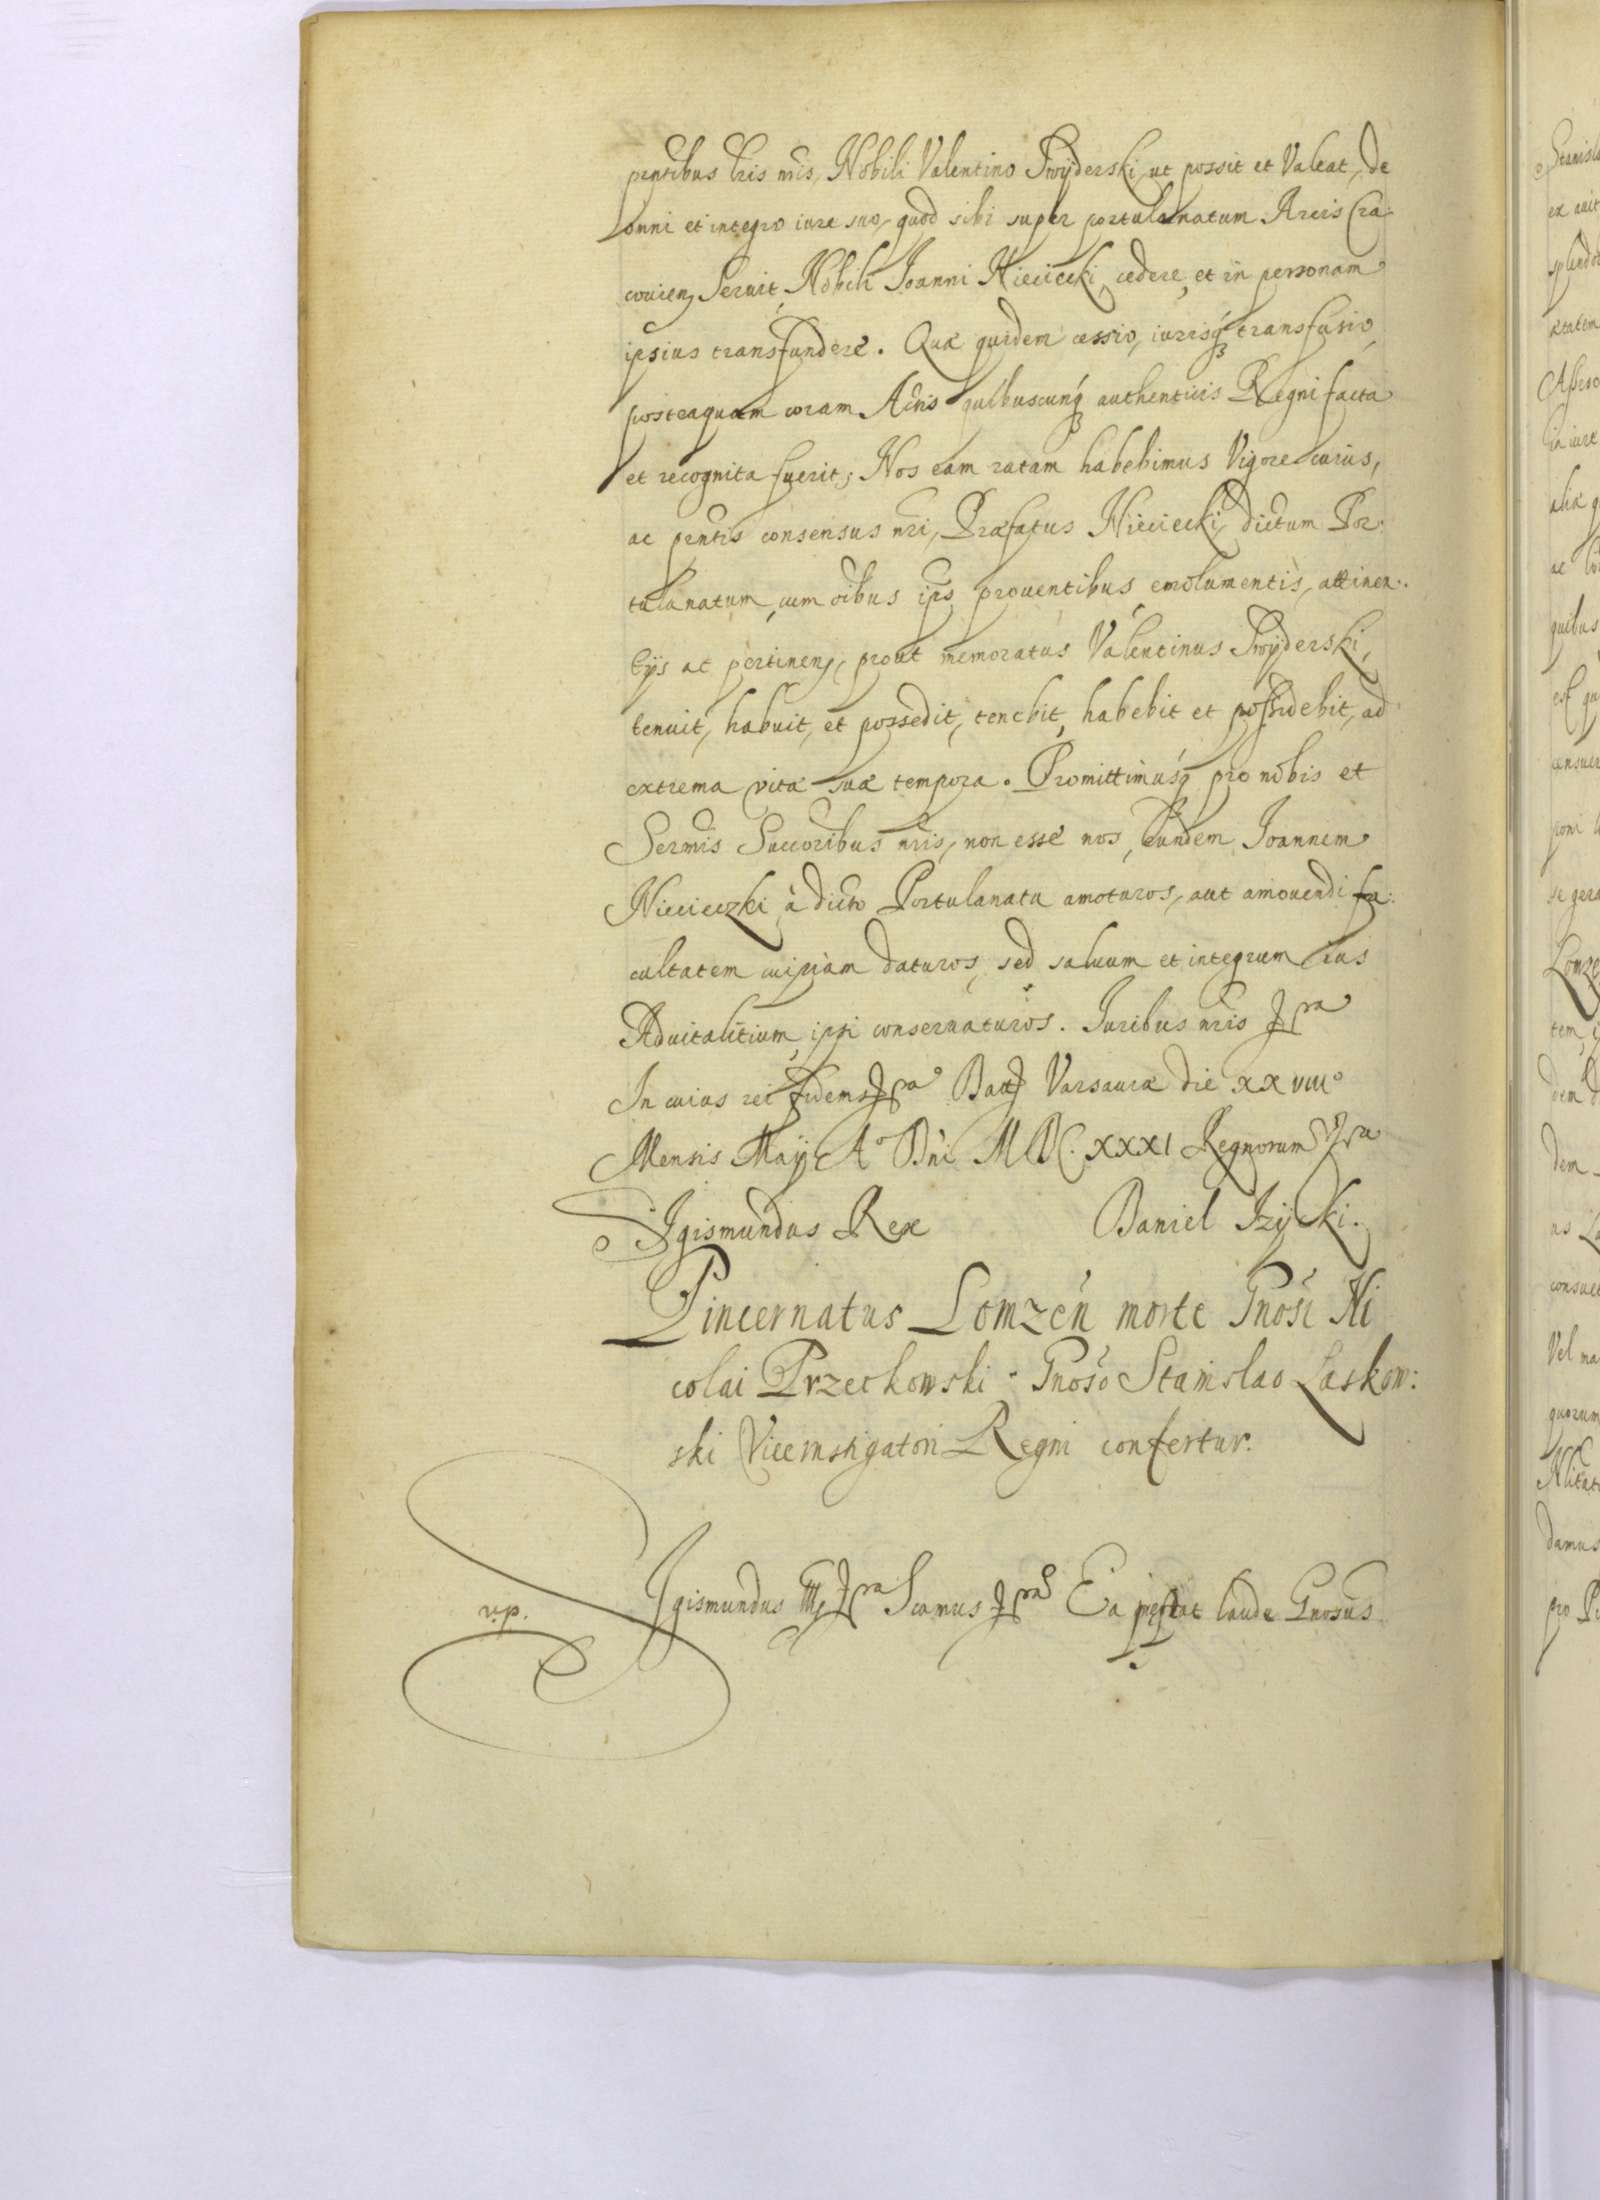 pntibus lris nris, Nobili Valentino Swÿderski, ut possit et Valeat, de
omni et integro iure suo, quod sibi super portulanatum Arcis Cra-
couien, seruit, Nobili Ioanni Nieciecki cedere, et in personam
ipsius transfundere. Quæ quidem cessio, iurisq; transfusio,
posteaquam coram Actis quibuscunq; authenticis Regni facta
et recognita fuerit, Nos eam ratam habebimus Vigore cuius,
ac pntis consensus nri, Præfatus Nieciecki, dictum Por-
tulanatum, cum oibus ips prouentibus emolumentis, attinen-
tÿs ac pertinen, prout memoratus Valentinus Swÿderski,
tenuit, habuit, et possedit, tenebit, habebit et possidebit, ad
extrema vitæ suæ tempora. Promittimusq; pro nobis et
Sermis Succoribus nris, non esse nos, eundem Ioannem
Niecieczki à dicto Portulanatu amoturos, aut amouendi fa-
cultatem cuipiam daturos, sed saluum et integrum ius
Aduitalitium, ipsi conseruaturos. Iuribus nris &ra
In cuius rei fidem &ra Datt Varsauiæ die XXVIII°
Mensis Maÿ A° Dni MDC.XXXI Regnorum &ra
Sigismundus Rex Daniel Izÿcki.
Pincernatus Lomzen morte Gnosi Ni
colai Przeckowski Gnoso Stanislao Laskow:
ski Viceinstigatori Regni confertur.
Sigismundus III &ra Scamus &ra Ea laude Gnosus